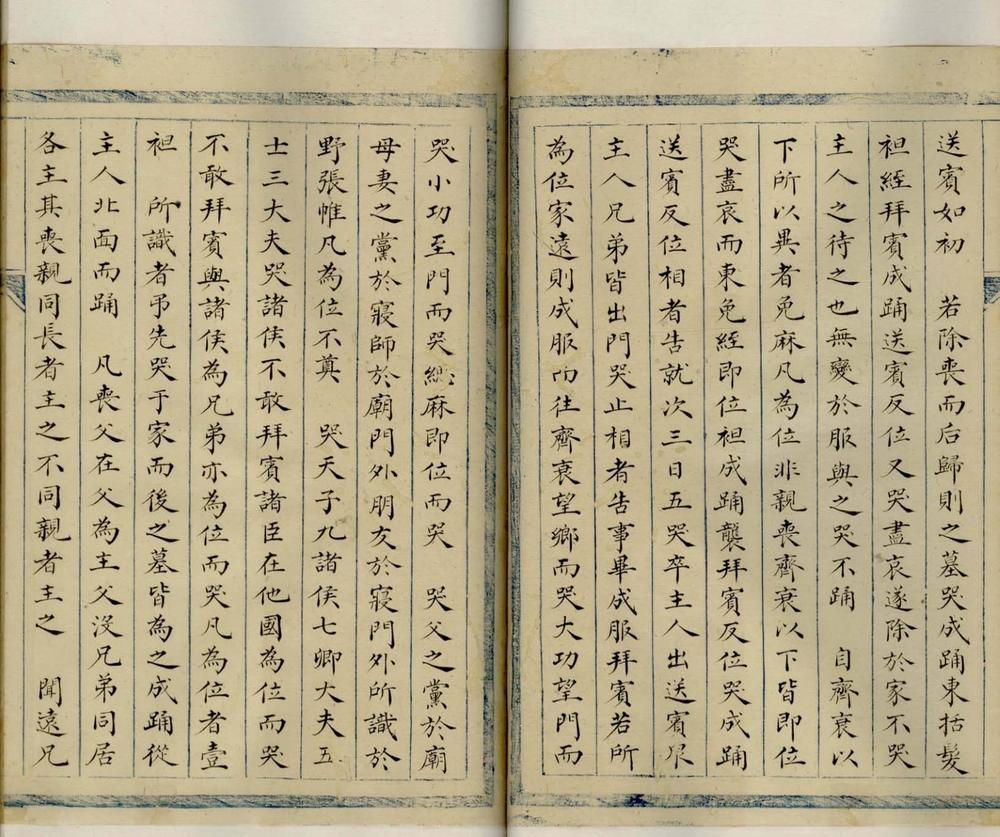 送賓如初　若除喪而后歸則之墓哭成踊東括髮
袒絰拜賓成踊送賓反位又哭盡哀遂除於家不哭
主人之待之也無變於服與之哭不踊　自齊衰以
下所以異者免麻凡為位非親喪齊衰以下皆即位
哭盡哀而東免絰即位袒成踊襲拜賓反位哭成踊
送賓反位相者告就次三日五哭卒主人出送賓
主人兄弟皆出門哭止相者告事畢成服拜賓若所
為位家遠則成服而往齊衰望鄉而哭大功望門而
哭小功至門而哭緦麻即位而哭　哭父之黨於廟
母妻之黨於寢師於廟門外朋友於寢門外所識於
野張帷凡為位不奠　哭天子九諸侯七卿大夫五
士三大夫哭諸侯不敢拜賓諸臣在他國為位而哭
不敢拜賓與諸侯為兄弟亦為位而哭凡為位者壹
袒　所識者弔先哭于家而後之墓皆為之成踊從
主人北面而踊　凡喪父在父為主父沒兄弟同居
各主其喪親同長者主之不同親者主之　聞遠兄